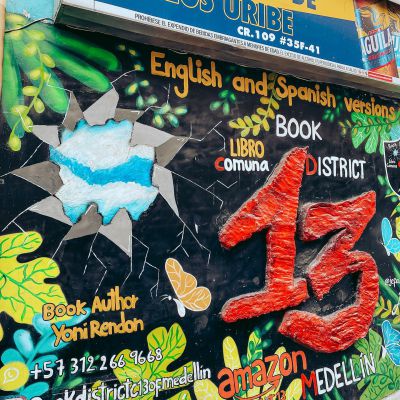 DE
LOS URIBE
CR.109 #35F-41
PROHÍBESE EL EXPENDIO DE BEBIDAS EMBRIAGANTES A MENORES DE EDAD.
AGUILA
English and Spanish versions
BOOK
LIBRO
Comuna DISTRICT
13
Book Author
Yoni Rendon
+57 312 266 9668
Bookdistrict13ofmedellin
amazon
MEDELLÍN